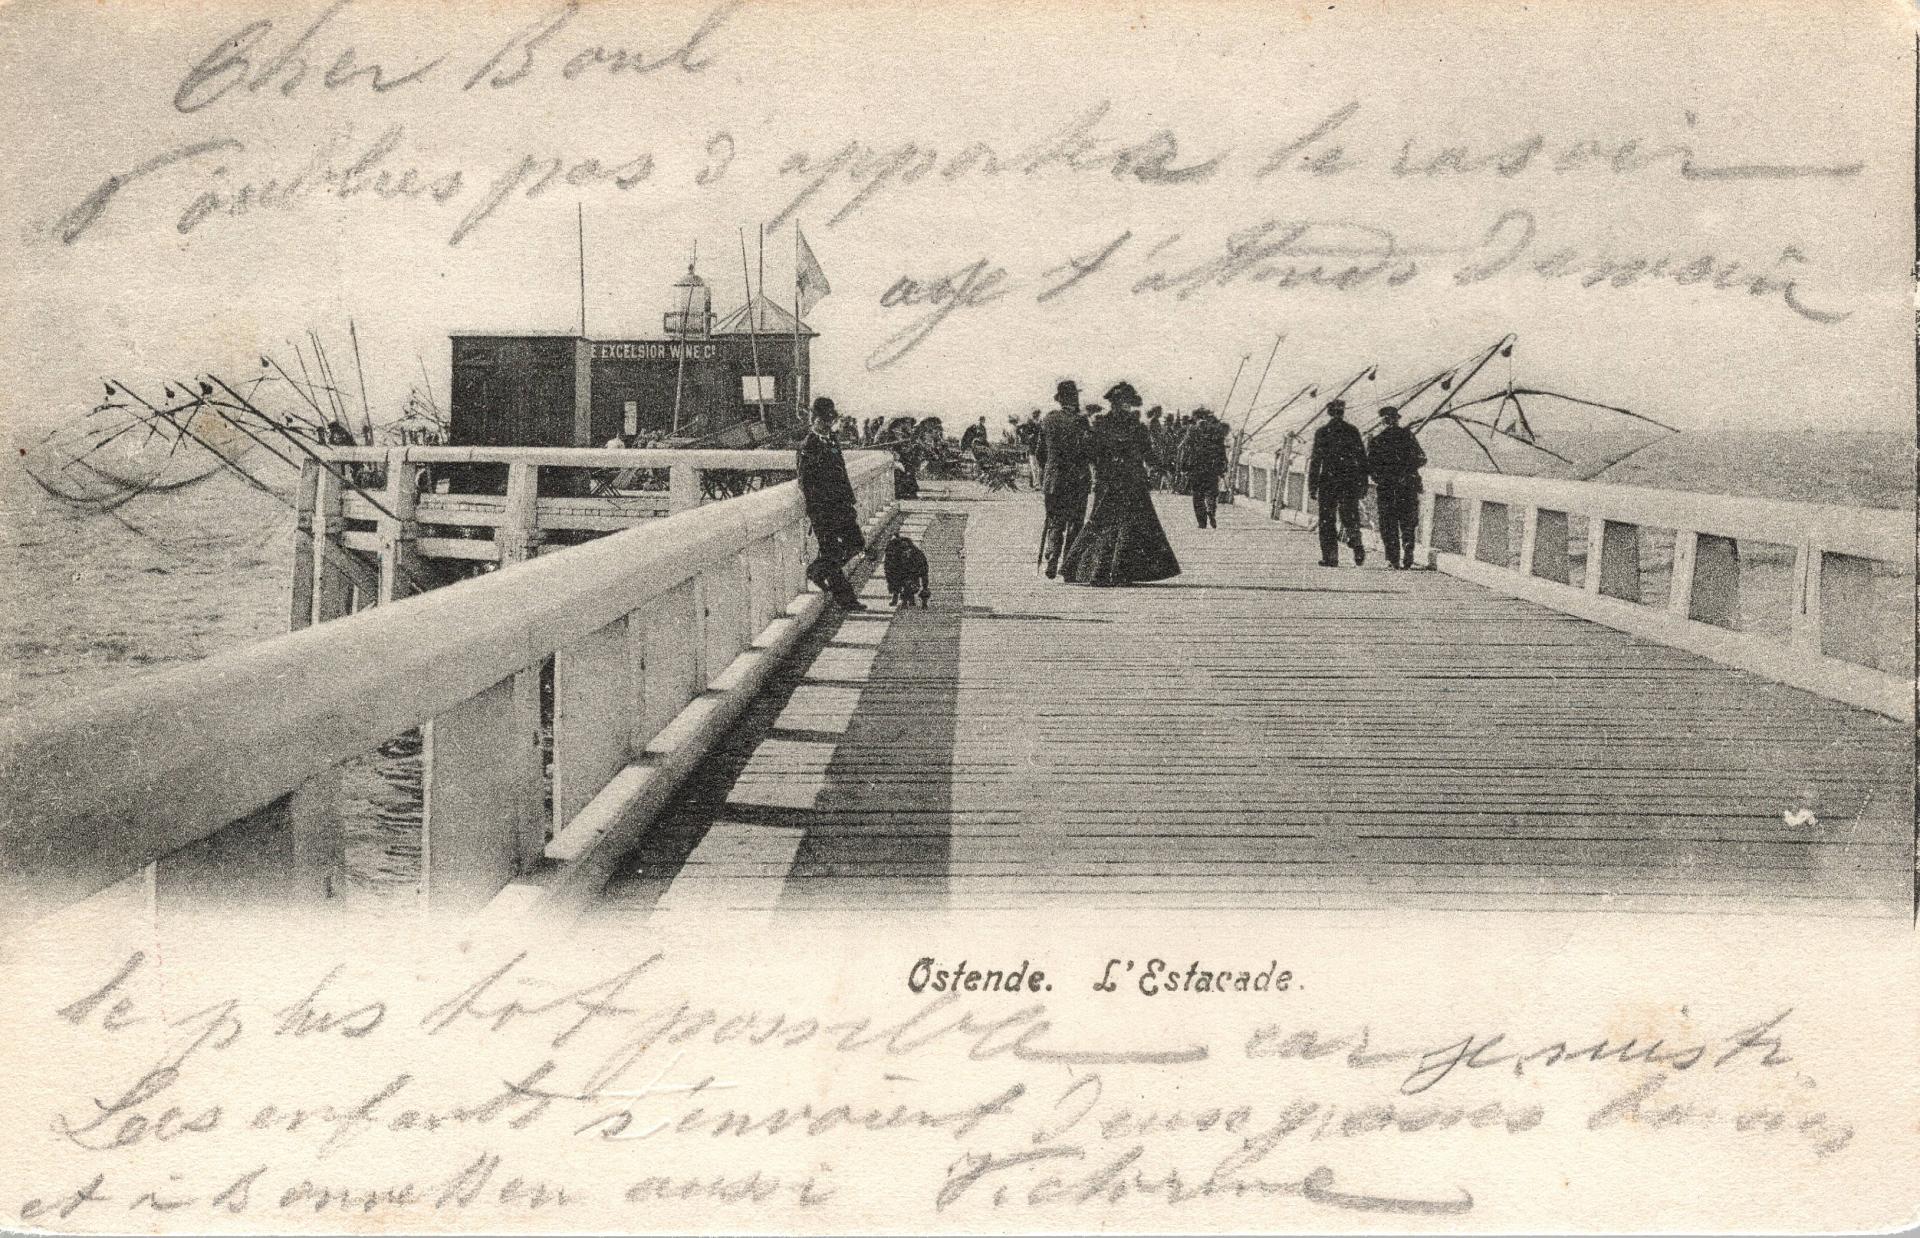 Cher Boul
N'oublies pas d'apporter le rasoir
age t'attends demain
E EXCELSIOR WINE Co
Ostende. L'Estacade.
le plus tôt possible car je suis tr
Les enfants s'envoient deux grosses baises
et à Bonnetten aussi Victorine